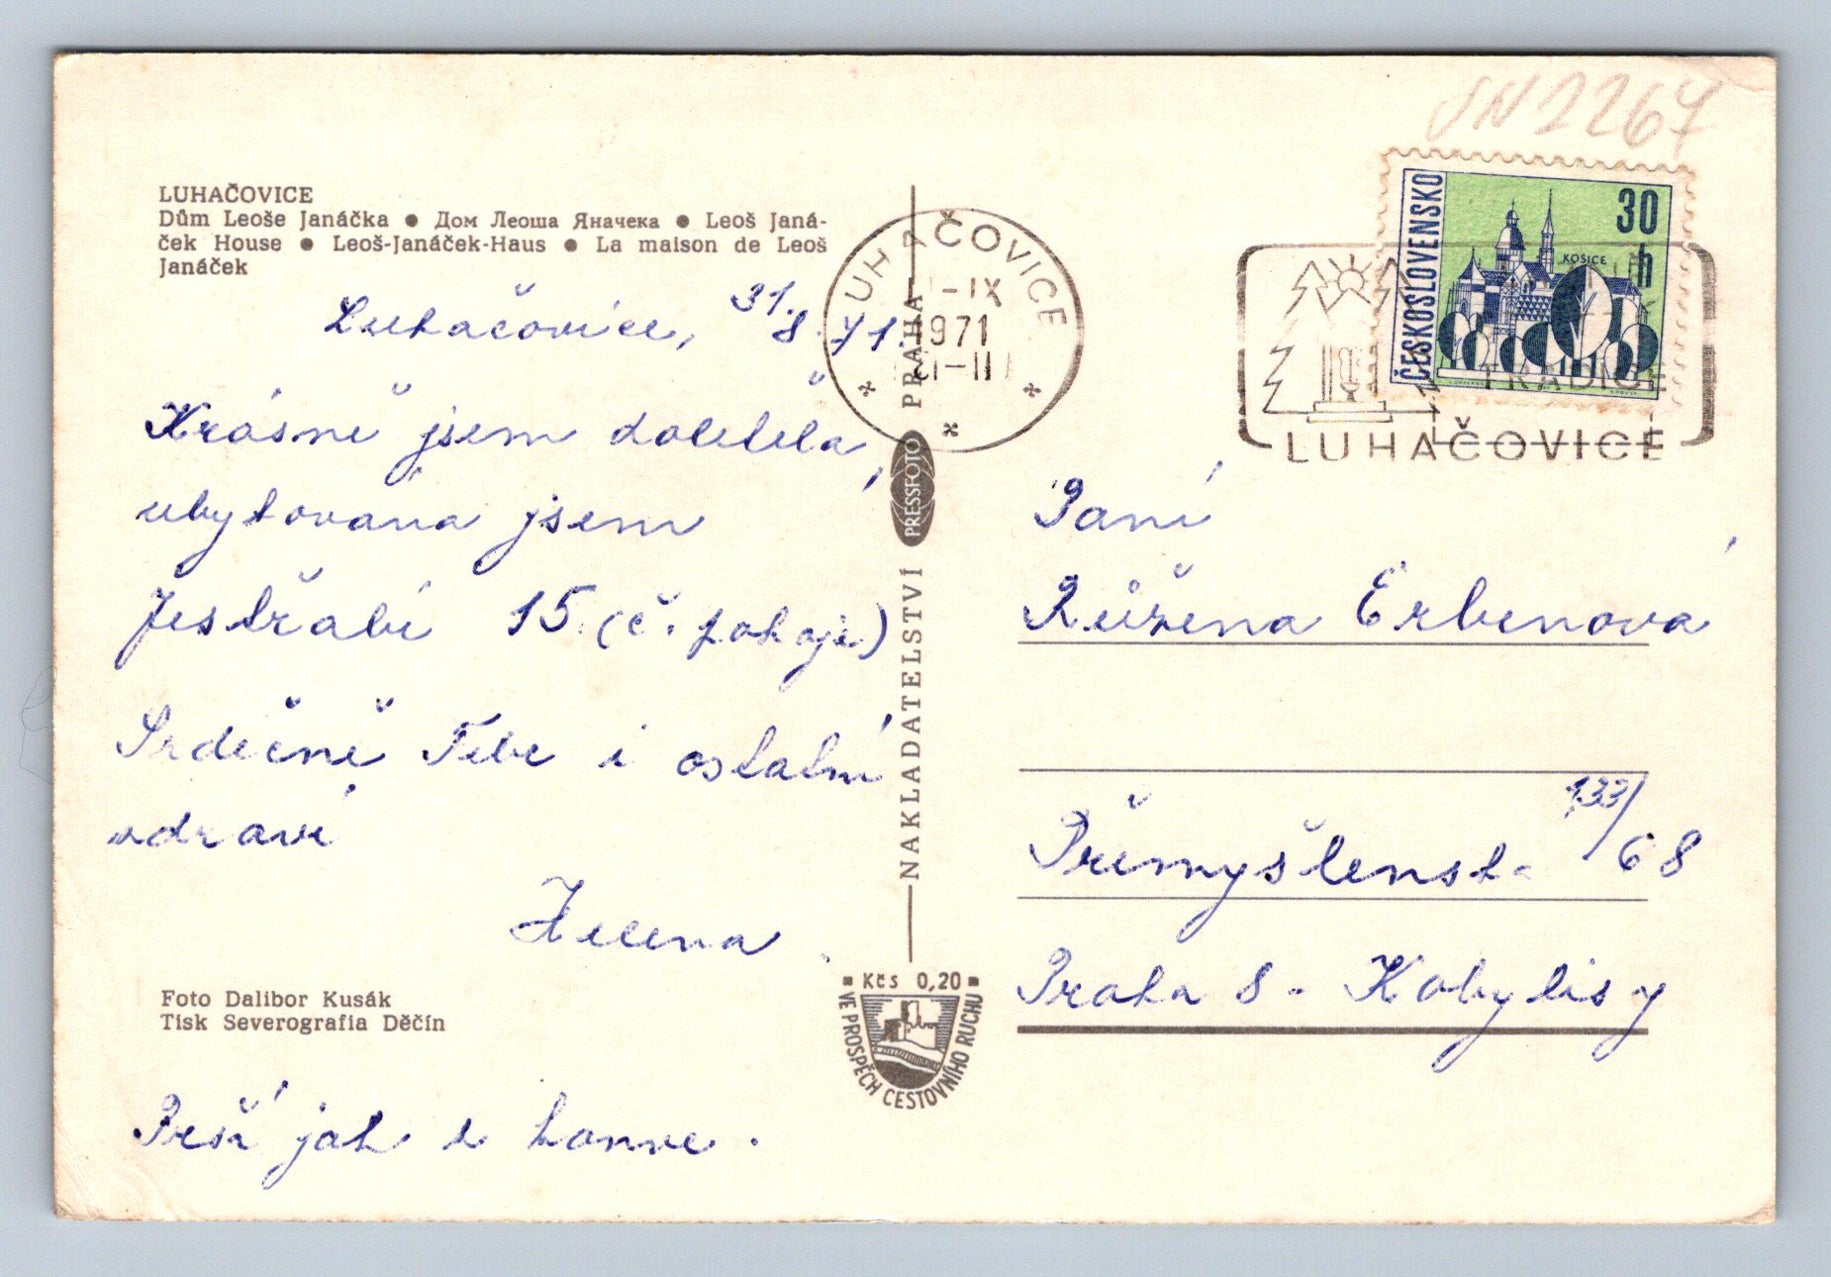 JN 2267
LUHAČOVICE
Dům Leoše Janáčka ● Дом Леоша Яначека ● Leoš Janá-
ček House ● Leoš-Janáček-Haus ● La maison de Leoš
Janáček
Luhačovice, 31. 8. 71.
Krásně jsem doletěla,
ubytována jsem
Jestřabí 15 (č. pokoje)
Srdečně Tebe i ostatní
zdraví
Helena
Foto Dalibor Kusák
Tisk Severografia Děčín
Prší jak z konve.
NAKLADATELSTVÍ PRESSFOTO PRAHA
Kčs 0,20
VE PROSPĚCH CESTOVNÍHO RUCHU
LUHAČOVICE
-IX
1971
ČESKOSLOVENSKO
30
h
KOŠICE
TRADICE
LUHAČOVICE
Paní
Růžena Erbenová
133/
Přemyšlensk 68
Praha 8 - Kobylisy